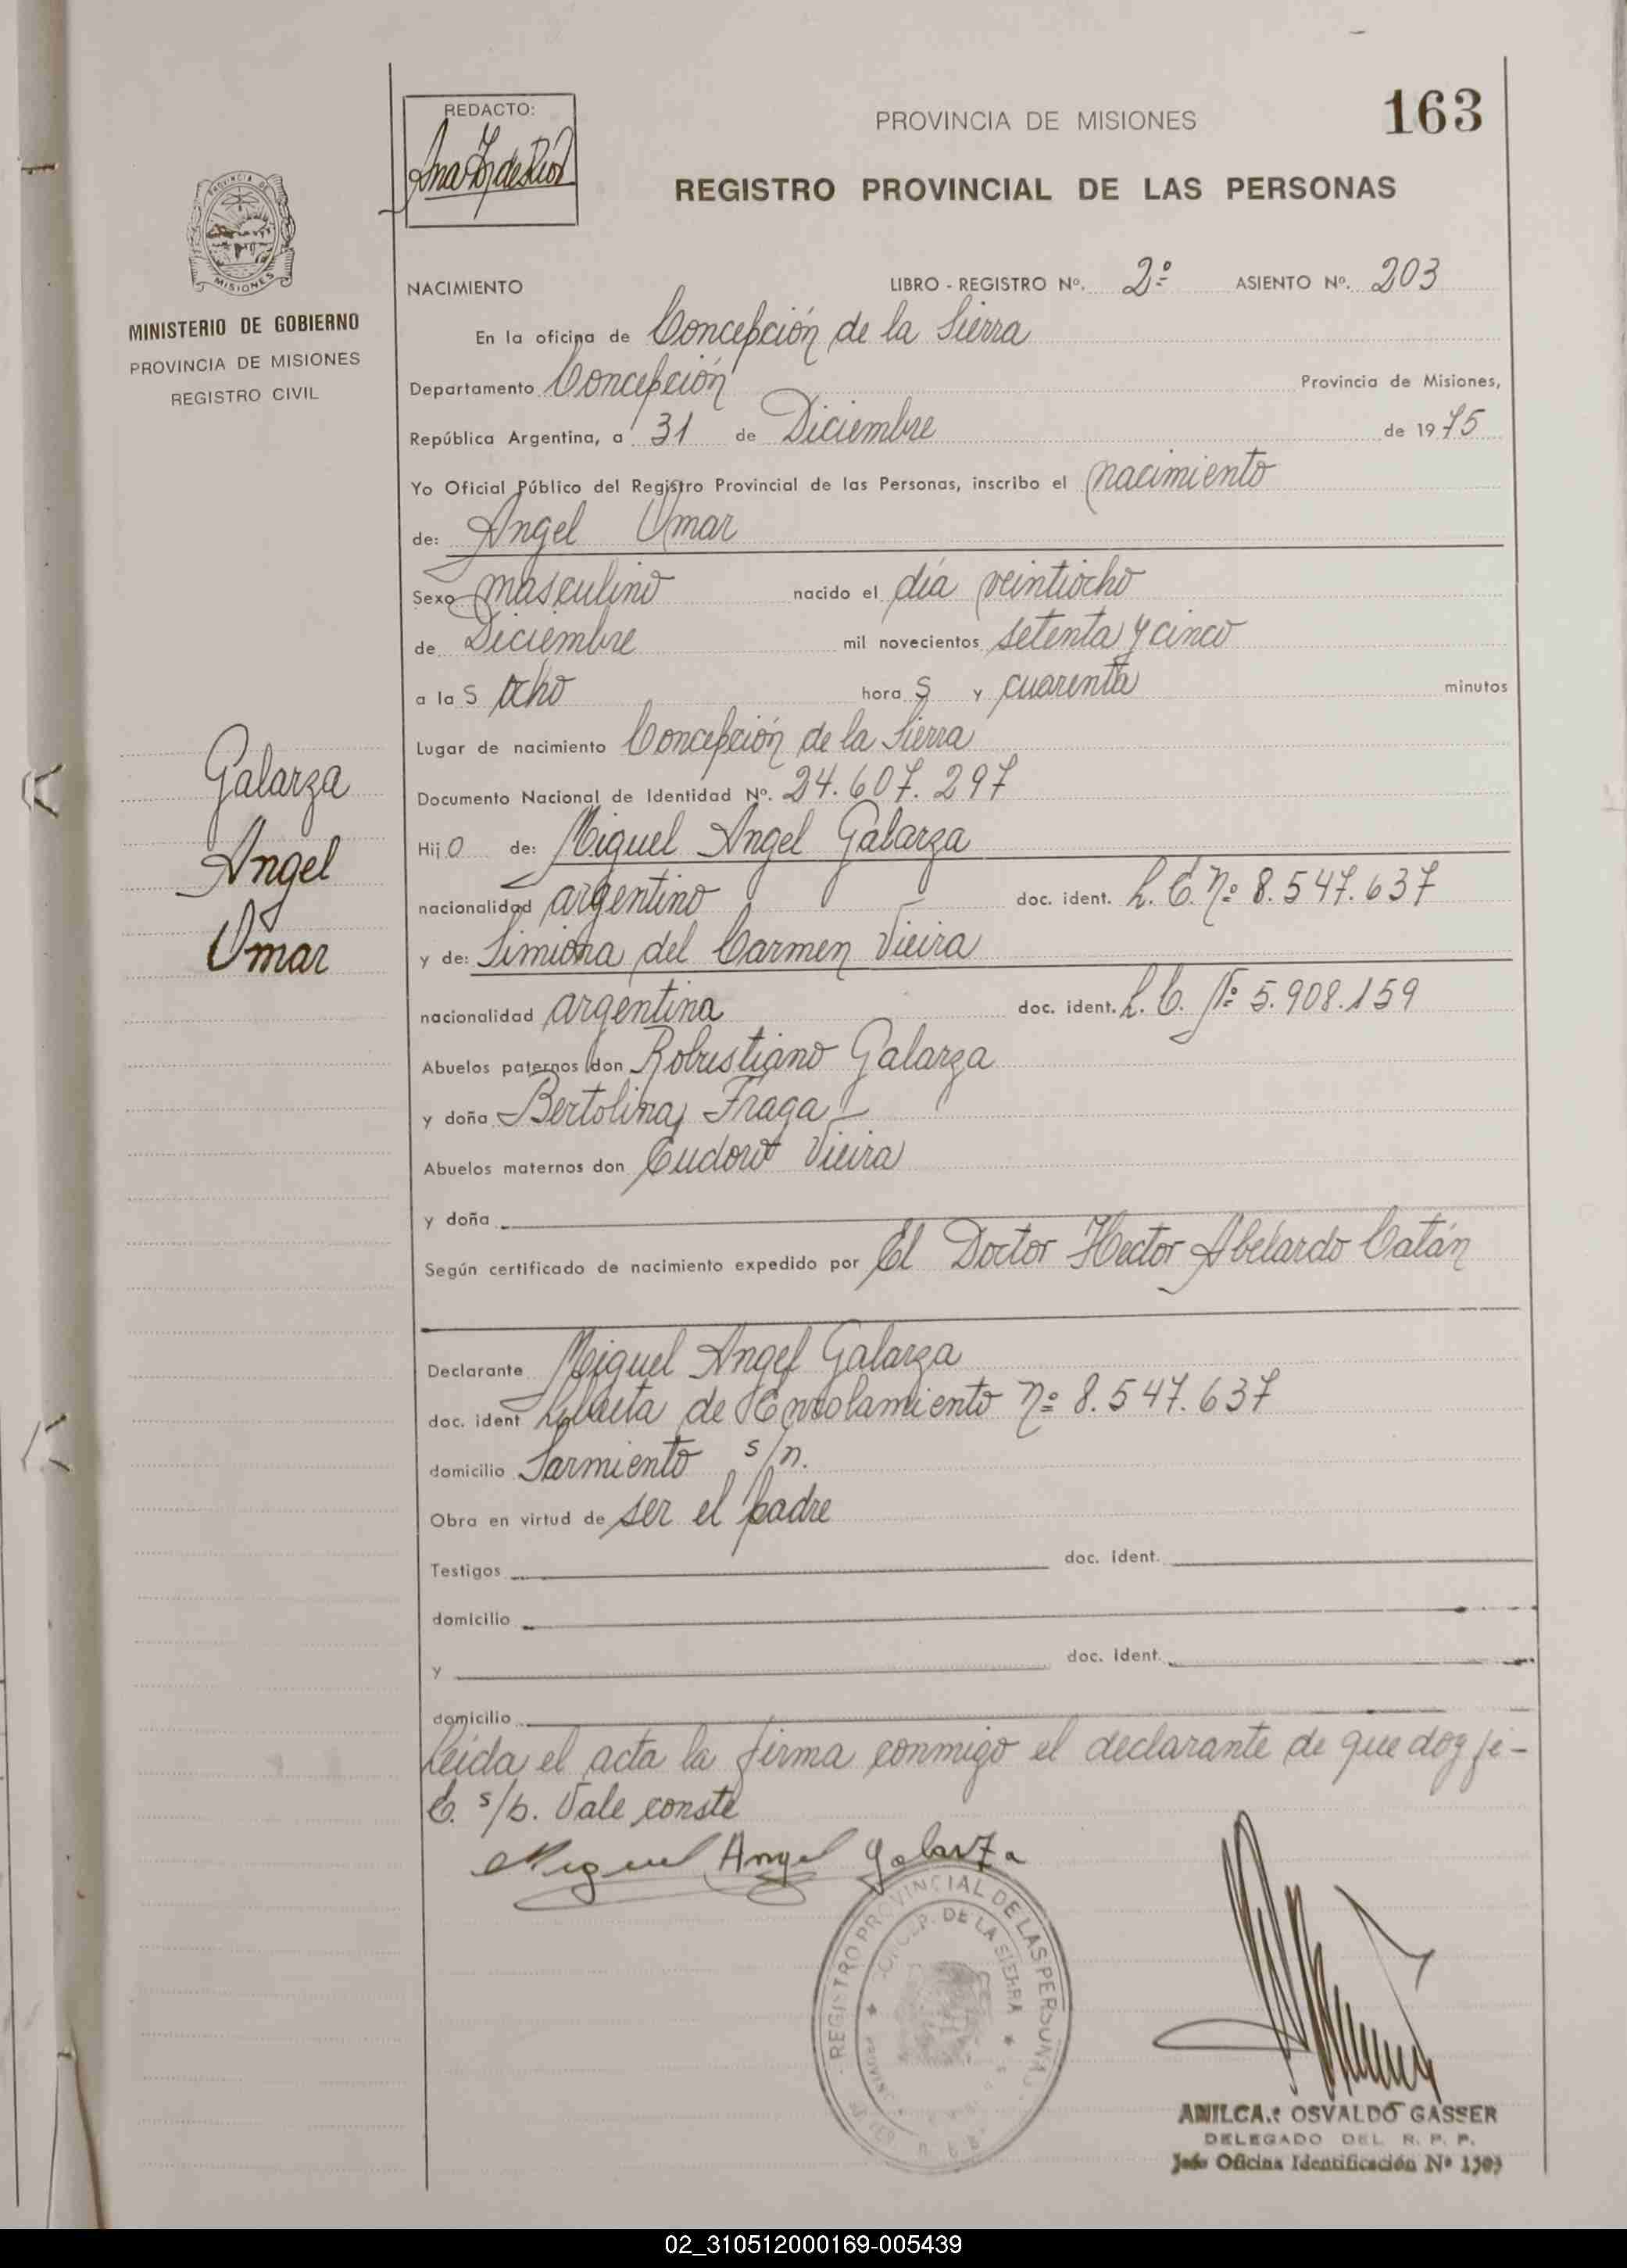 163
REDACTO:
PROVINCIA DE MISIONES
REGISTRO PROVINCIAL DE LAS PERSONAS
PROVINCIA DE
MISIONES
MINISTERIO DE GOBIERNO
PROVINCIA DE MISIONES
REGISTRO CIVIL
NACIMIENTO LIBRO - REGISTRO Nº. 2º ASIENTO Nº. 203
En la oficina de Concepción de la Sierra
Departamento Concepción Provincia de Misiones,
República Argentina, a 31 de Diciembre de 1975
Yo Oficial Público del Registro Provincial de las Personas, inscribo el nacimiento
de: Angel Omar
Sexo masculino nacido el día veintiocho
de Diciembre mil novecientos setenta y cinco
a la s ocho hora s y cuarenta minutos
Lugar de nacimiento Concepción de la Sierra
Documento Nacional de Identidad Nº. 24.607.297
Galarza
Angel
Omar
Hij o de: Miguel Angel Galarza
nacionalidad argentino doc. ident. L. E. nº 8.547.637
y de: Simiona del Carmen Vieira
nacionalidad argentina doc. ident. L. C. Nº 5.908.159
Abuelos paternos don Robustiano Galarza
y doña Bertolina Fraga
Abuelos maternos don Eudoro Vieira
y doña
Según certificado de nacimiento expedido por El Doctor Hector Abelardo Catán
Declarante Miguel Angel Galarza
doc. ident Libreta de Enrolamiento nº 8.547.637
domicilio Sarmiento s/n.
Obra en virtud de ser el padre
Testigos doc. ident.
domicilio
y doc. ident.
domicilio
Leida el acta la firma conmigo el declarante de que doy fe-
E. s/b. Vale conste
Miguel Angel Galarza
REGISTRO PROVINCIAL DE LAS PERSONAS
CONCEP. DE LA SIERRA
OSVALDO GASSER
DELEGADO DEL R. P. P.
Jefe Oficina Identificación Nº
02_310512000169-005439